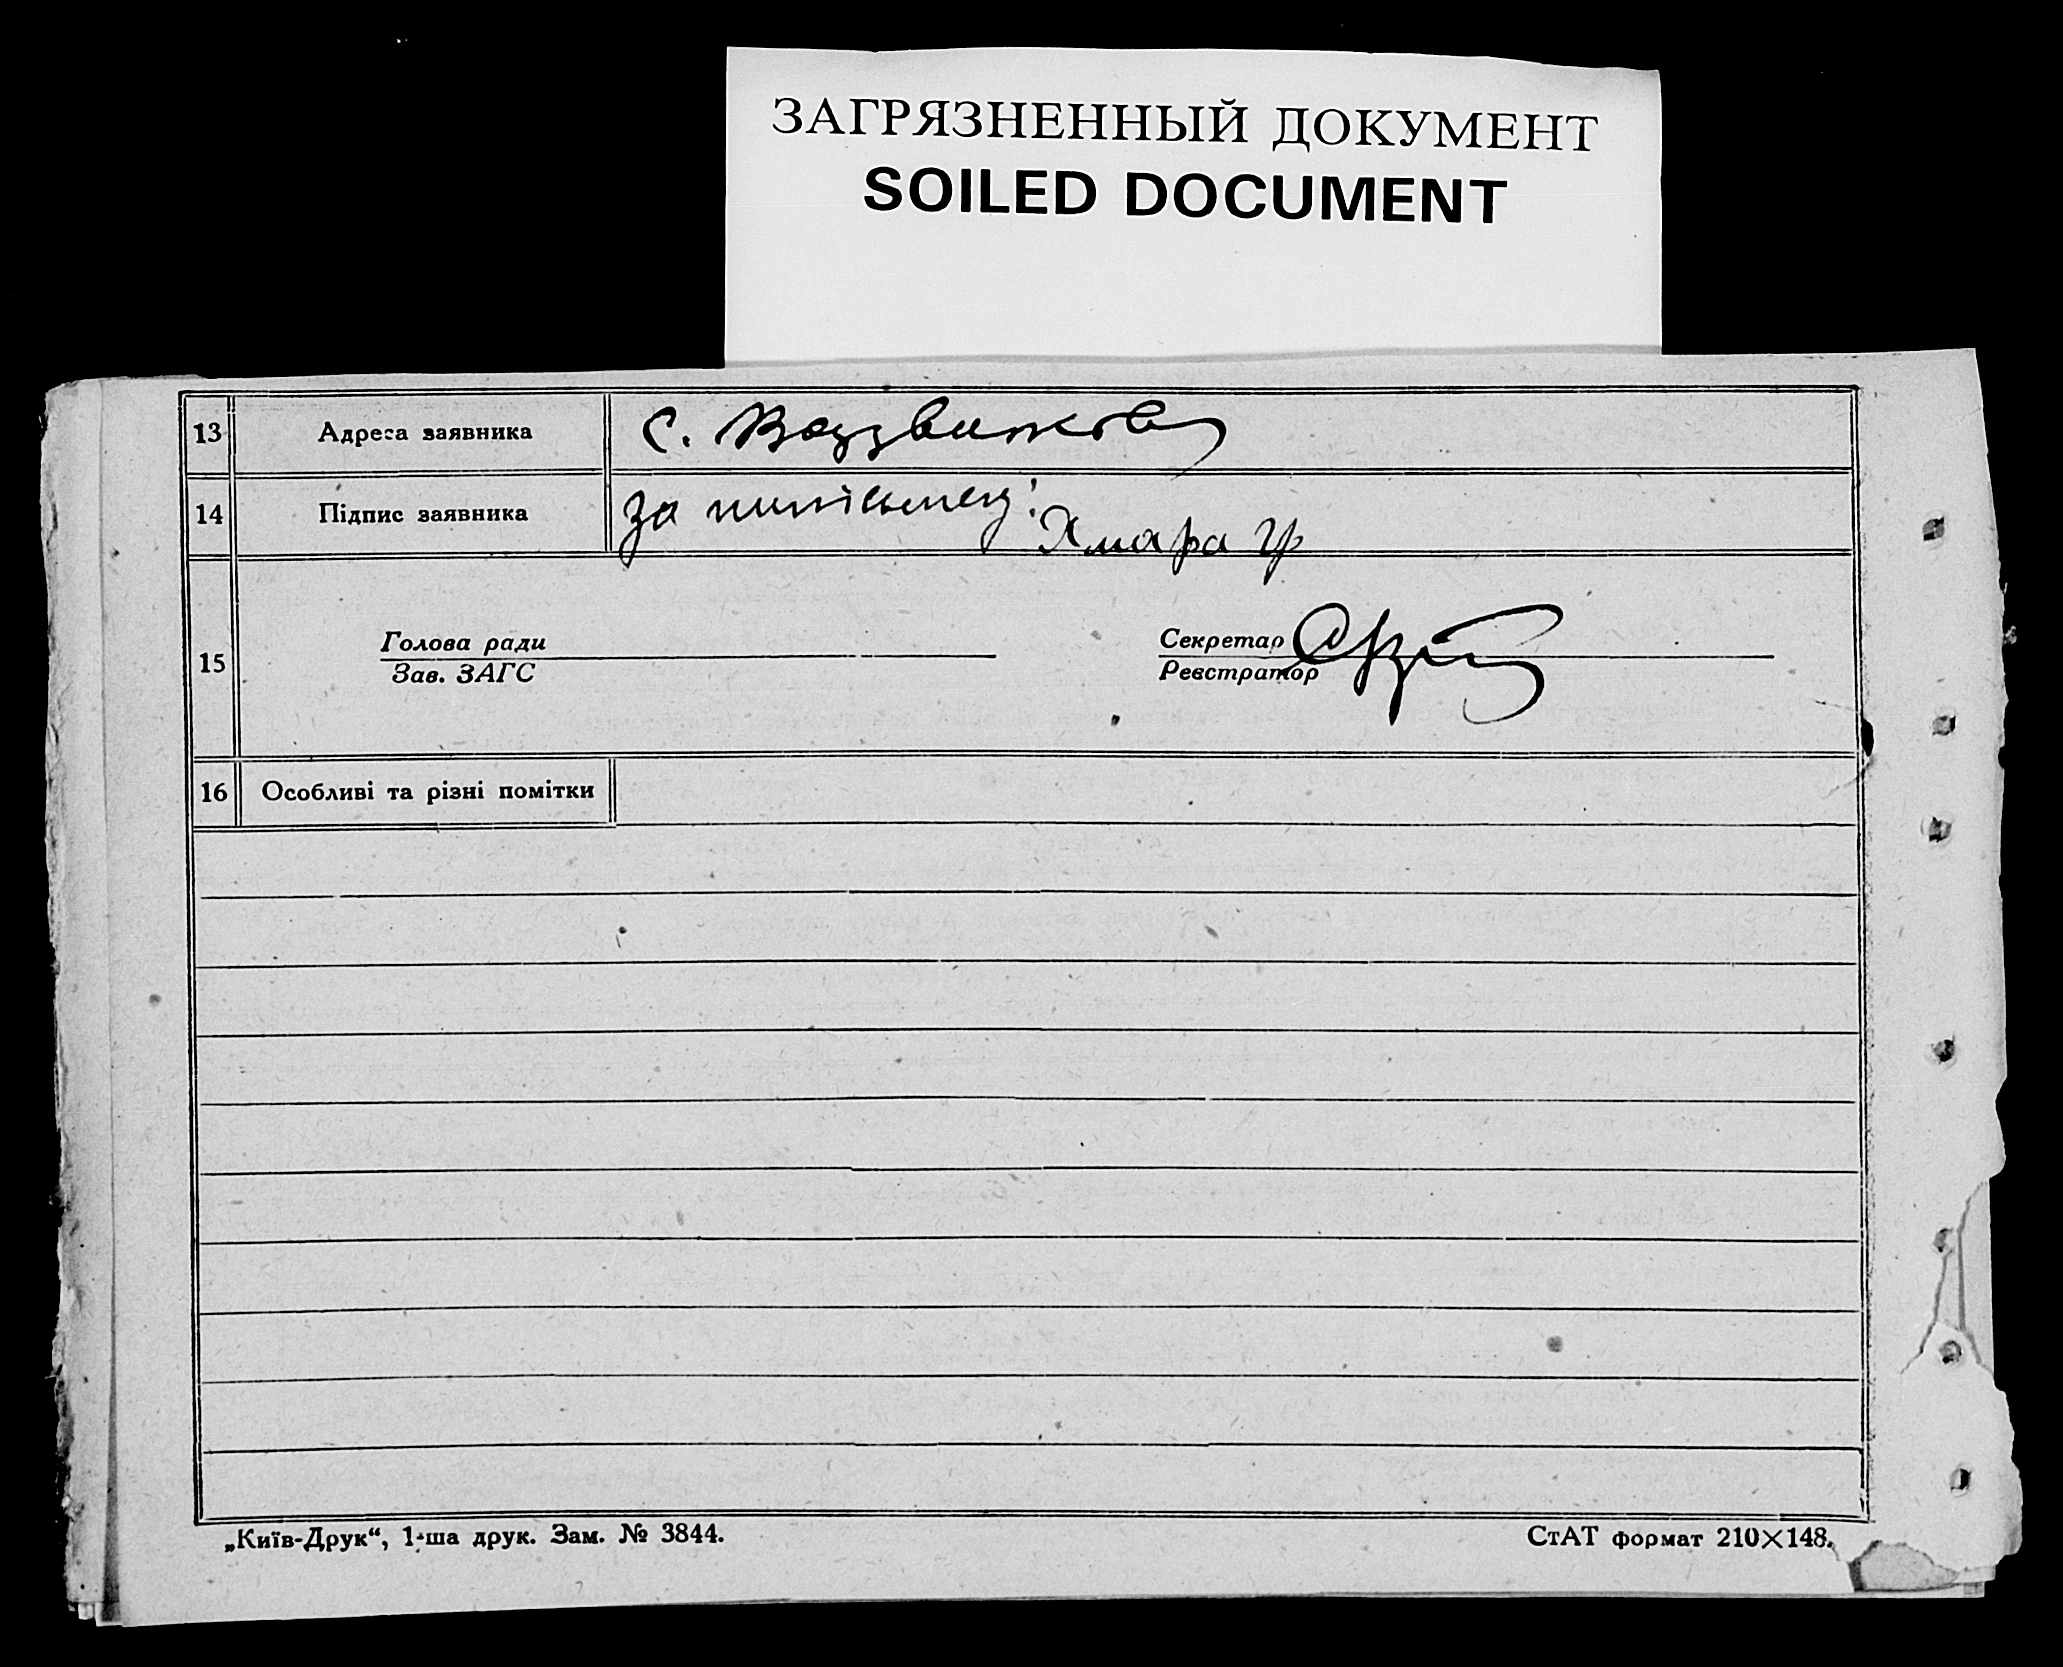 ЗАГРЯЗНЕННЫЙ ДОКУМЕНТ
SOILED DOCUMENT
13 Адреса заявника с. Воздвижов
14 Підпис заявника за
Хмара Гр
Голова ради Секретар
15
Зав. ЗАГС Реєстратор
16 Особливі та різні помітки
„Київ-Друк“, 1-ша друк. Зам. № 3844. СтАТ формат 210×148.